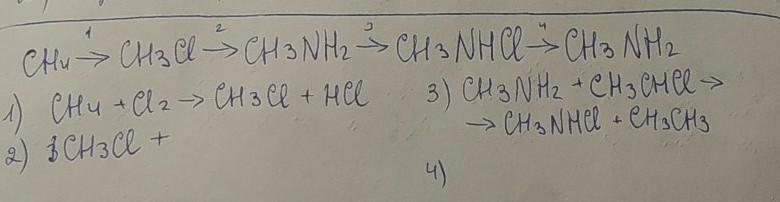 CH4 →1 CH3Cl →2 CH3NH2 →3 CH3NHCl →4 CH3NH2
1) CH4 + Cl2 → CH3Cl + HCl
2) CH3Cl +
3) CH3NH2 + CH3CHCl →
→ CH3NHCl + CH3CH3
4)